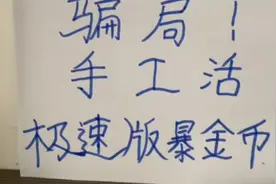 骗局！
手工活
极速版暴金币